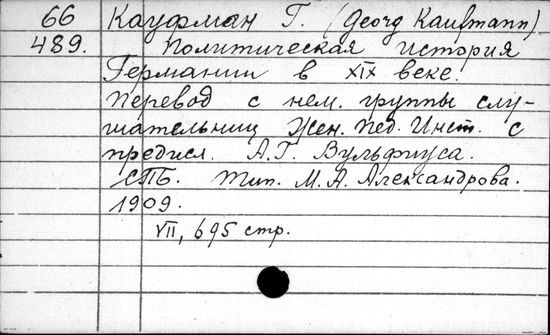 66 Кауфман Г. (Georg Kaufmann)
489. Политическая история
Германии в XIX веке.
Перевод с нем. группы слу-
шательниц Жен. Пед. Инст. с
предисл. А.Г. Вульфиуса.
СПБ. Тип. М.А. Александрова.
1909.
VII, 695 стр.